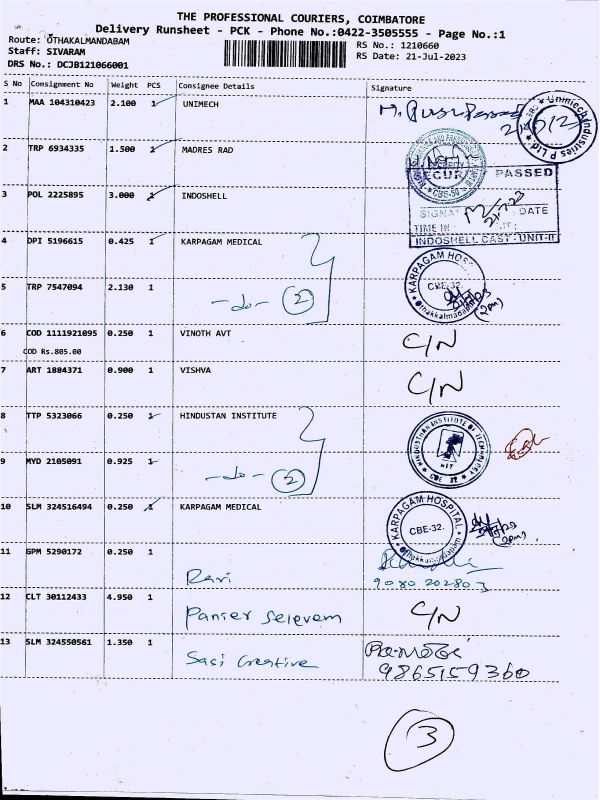 THE PROFESSIONAL COURIERS, COIMBATORE
Delivery Runsheet - PCK - Phone No.:0422-3505555 - Page No.:1
Route: OTHAKALMANDABAM
Staff: SIVARAM
DRS No.: DCJB121066001
RS No.: 1210660
RS Date: 21-Jul-2023
S No Consignment No Weight PCS Consignee Details Signature
1 MAA 104310423 2.100 1 UNIMECH
Unimech Industries P Ltd
2 TRP 6934335 1.500 1 MADRES RAD
3 POL 2225895 3.000 1 INDOSHELL
PASSED
DATE
TIME IN
INDOSHELL CAST UNIT-II
4 DPI 5196615 0.425 1 KARPAGAM MEDICAL
KARPAGAM HOSPITAL
CBE-32.
Othakkalmandapam
(2pm)
5 TRP 7547094 2.130 1 -do- 2
6 COD 1111921095 0.250 1 VINOTH AVT C/N
COD Rs.805.00
7 ART 1884371 0.900 1 VISHVA C/N
8 TTP 5323066 0.250 1 HINDUSTAN INSTITUTE
HINDUSTHAN INSTITUTE OF TECHNOLOGY
HIT
CBE 32
9 MYD 2105091 0.925 1 -do- 2
10 SLM 324516494 0.250 1 KARPAGAM MEDICAL
KARPAGAM HOSPITAL
CBE-32.
Othakkalmandapam
(2pm)
11 GPM 5290172 0.250 1 Ravi
12 CLT 30112433 4.950 1 Panier Selevam C/N
13 SLM 324550561 1.350 1 Sasi Creative
9865159360
3